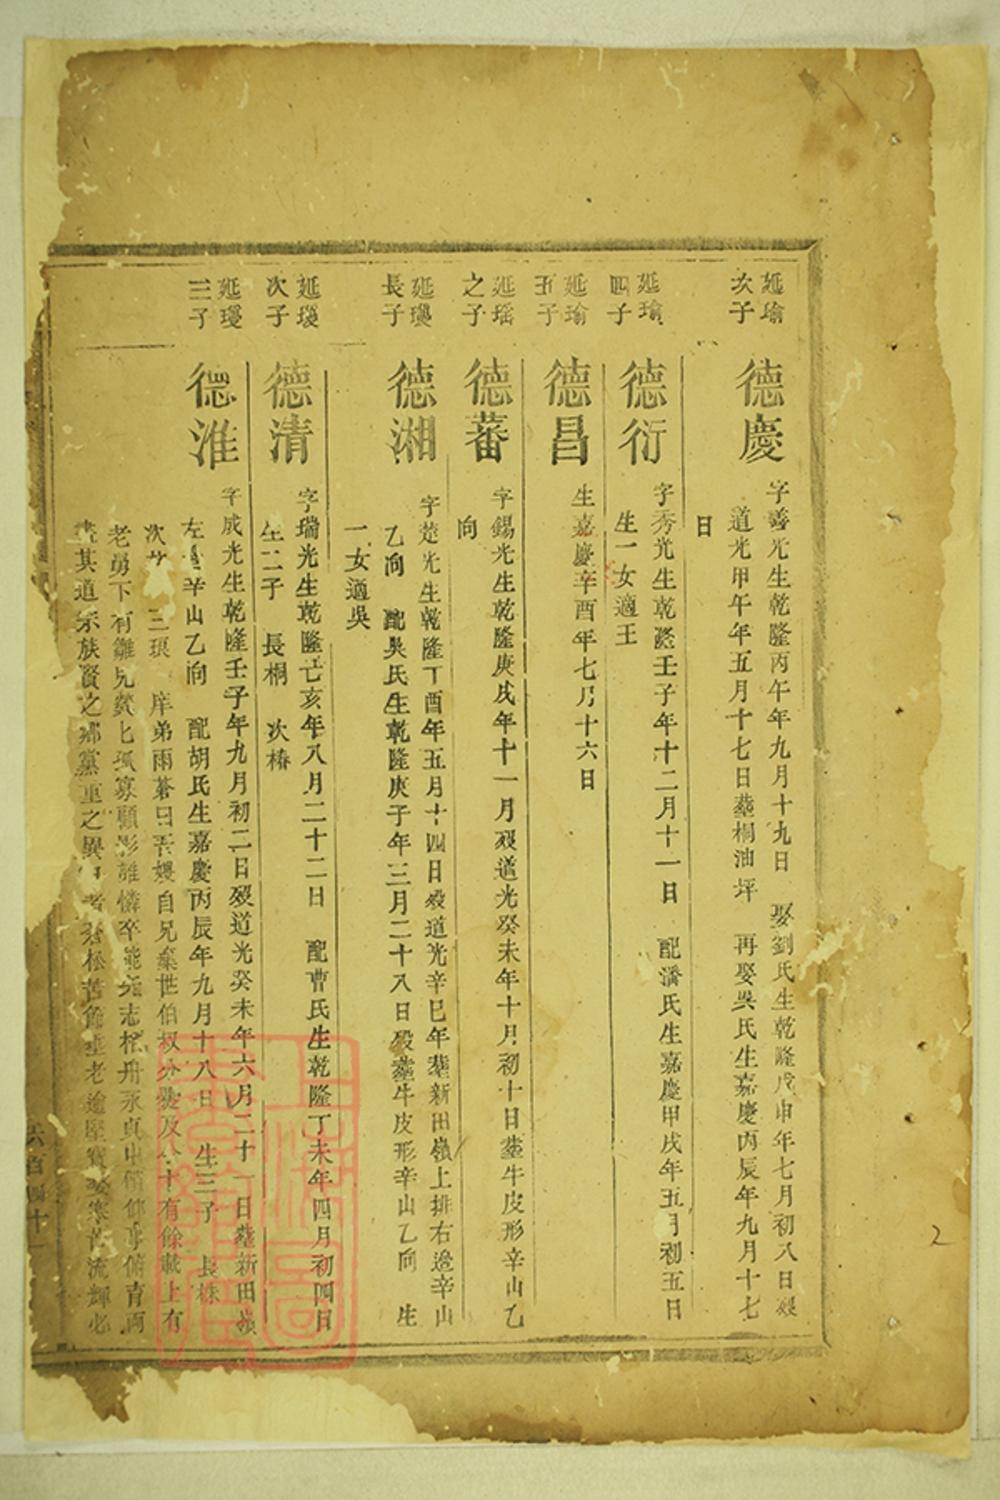 延瑜
次子
德慶
字善光生乾隆丙午年九月十九日 娶劉氏生乾隆戊申年七月初八日歿
道光甲午年五月十七日塟桐油坪 再娶吳氏生嘉慶丙辰年九月十七
日
延瑜
四子
德衍
字秀光生乾隆壬子年十二月十一日 配潘氏生嘉慶甲戌年五月初五日
生一女適王
延瑜
五子
德昌
生嘉慶辛酉年七月十六日
延瑶
之子
德蕃
字錫光生乾隆庚戌年十一月歿道光癸未年十月初十日塟牛皮形辛山乙
向
延瓊
長子
德湘
字楚光生乾隆丁酉年五月十四日歿道光辛巳年塟新田嶺上排右邉辛山
乙向 配吳氏生乾隆庚子年三月二十八日歿塟牛皮形辛山乙向 生
一女適吳
延瓊
次子
德清
字瑞光生乾隆己亥年八月二十二日 配曹氏生乾隆丁未年四月初四日
生二子 長桐 次椿
延瓊
三子
德淮
字成光生乾隆壬子年九月初二日歿道光癸未年六月二十一日塟新田嶺
左邉辛山乙向 配胡氏生嘉慶丙辰年九月十八日 生三子 長株
次 三 庠弟雨蒼曰吾嫂自兄棄世伯叔分爨及今十有餘載上有
老舅下有雛兒煢煢孤寡顧影誰憐卒能矢志栢舟永貞中饋仰事俯育両
其道宗族賢之鄉黨重之異 者 松苦節 老逾堅寶婺 流輝必
六百四十一
2